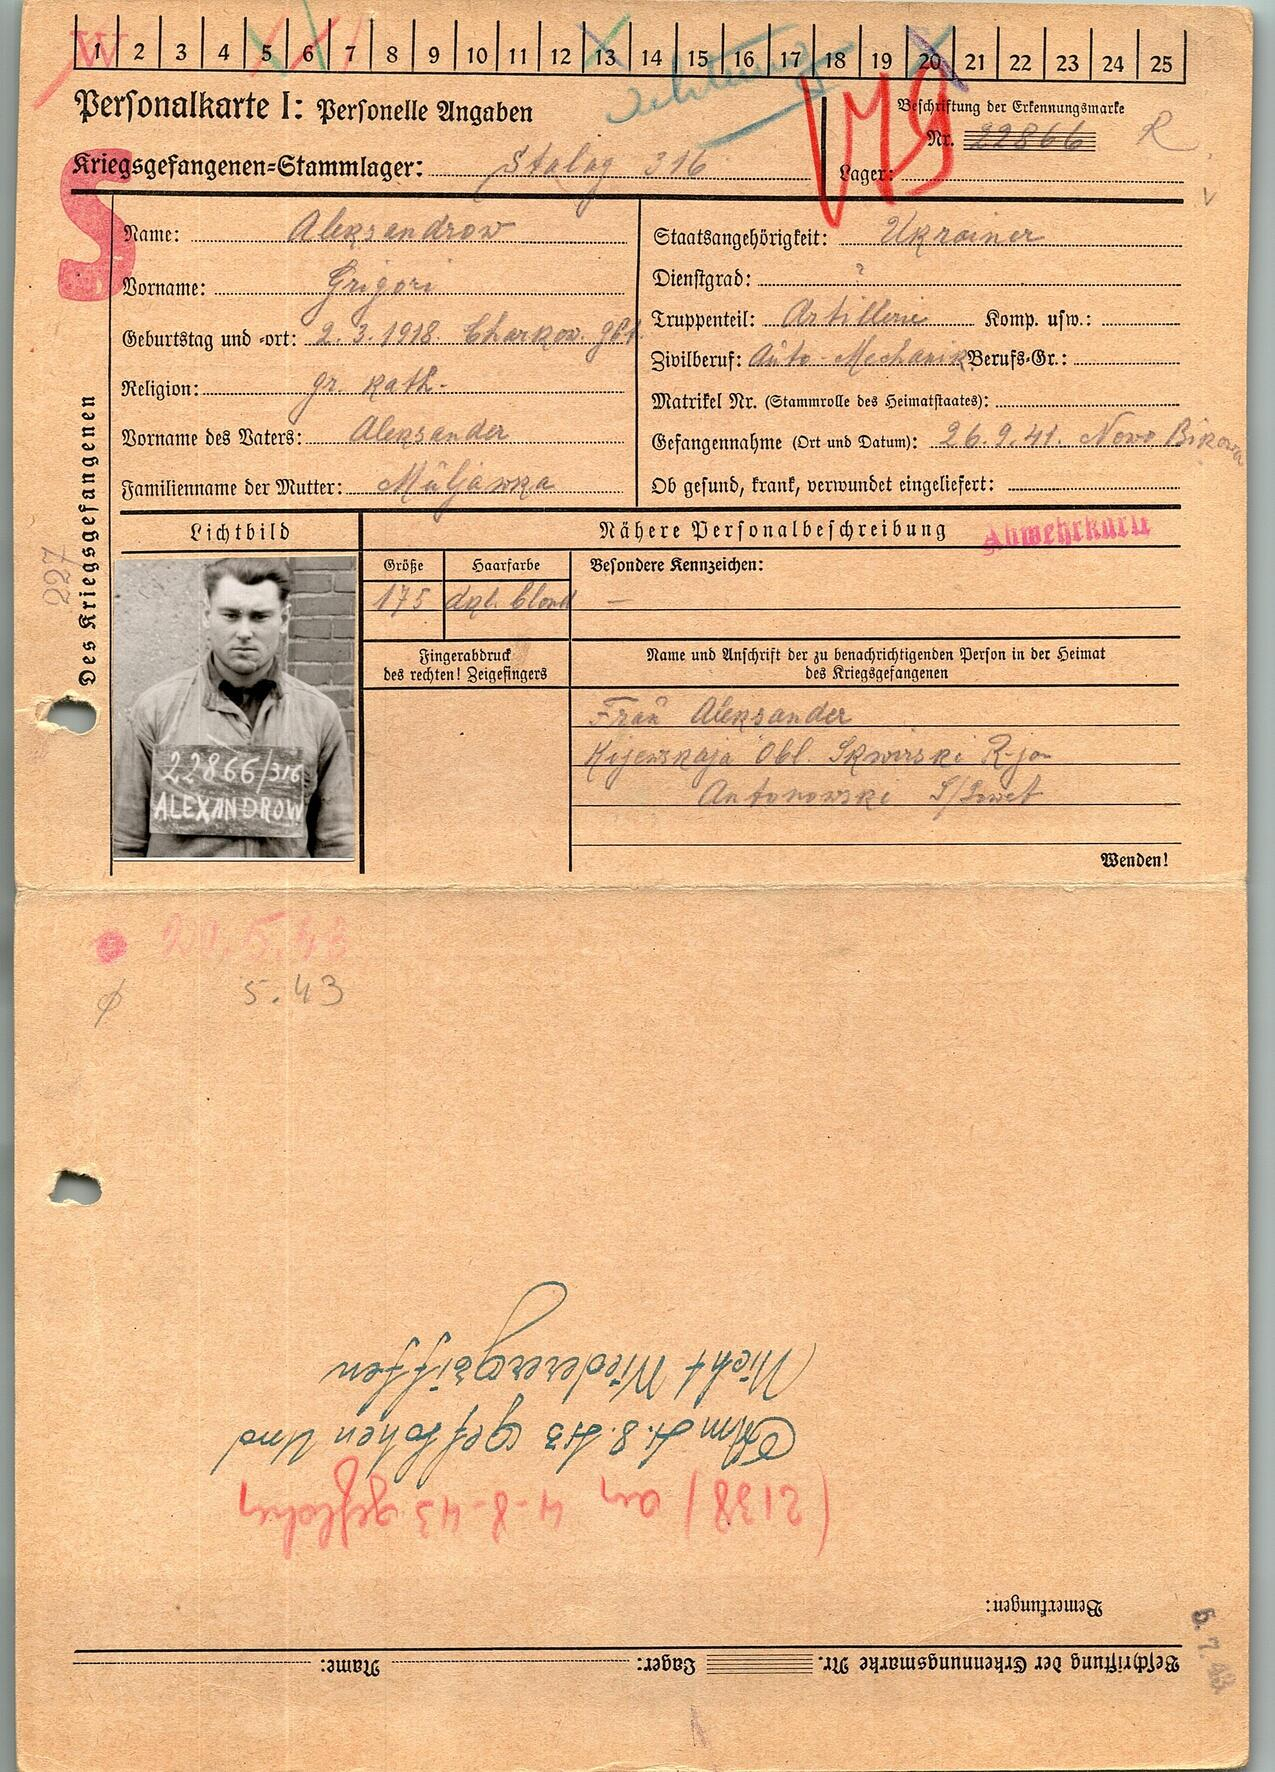 W
1 2 3 4 5 6 7 8 9 10 11 12 13 14 15 16 17 18 19 20 21 22 23 24 25
Personalkarte I: Personelle Angaben
Beschriftung der Erkennungsmarke
Nr. 22866 R
Kriegsgefangenen-Stammlager: Stalag 316
Lager:
S
Des Kriegsgefangenen
227
Name: Aleksandrow
Vorname: Grigori
Geburtstag und -ort: 2.3.1918. Charkow. gbt.
Religion: gr. kath.
Vorname des Vaters: Aleksander
Familienname der Mutter: Müljawka
Staatsangehörigkeit: Ukrainer
Dienstgrad: ?
Truppenteil: Artillerie Komp. usw.:
Zivilberuf: Auto-Mechanik Berufs-Gr.:
Matrikel Nr. (Stammrolle des Heimatstaates):
Gefangennahme (Ort und Datum): 26.9.41. Nowo Bikowa
Ob gesund, krank, verwundet eingeliefert:
Lichtbild
Nähere Personalbeschreibung
Abwehrkarte
Größe Haarfarbe Besondere Kennzeichen:
175 dkl. blond —
Fingerabdruck
des rechten! Zeigefingers
Name und Anschrift der zu benachrichtigenden Person in der Heimat
des Kriegsgefangenen
Frau Aleksander
Kijewskaja Obl. Skwirski R-jon
Antonowski S/Sowet
22866/316
ALEXANDROW
Wenden!
20.5.43
5.43
Beschriftung der Erkennungsmarke Nr. Lager: Name:
Bemerkungen:
(2138) am 4-8-43 geflohen
Am 4.8.43 geflohen Und
Nicht Wiederergriffen
5.7.43